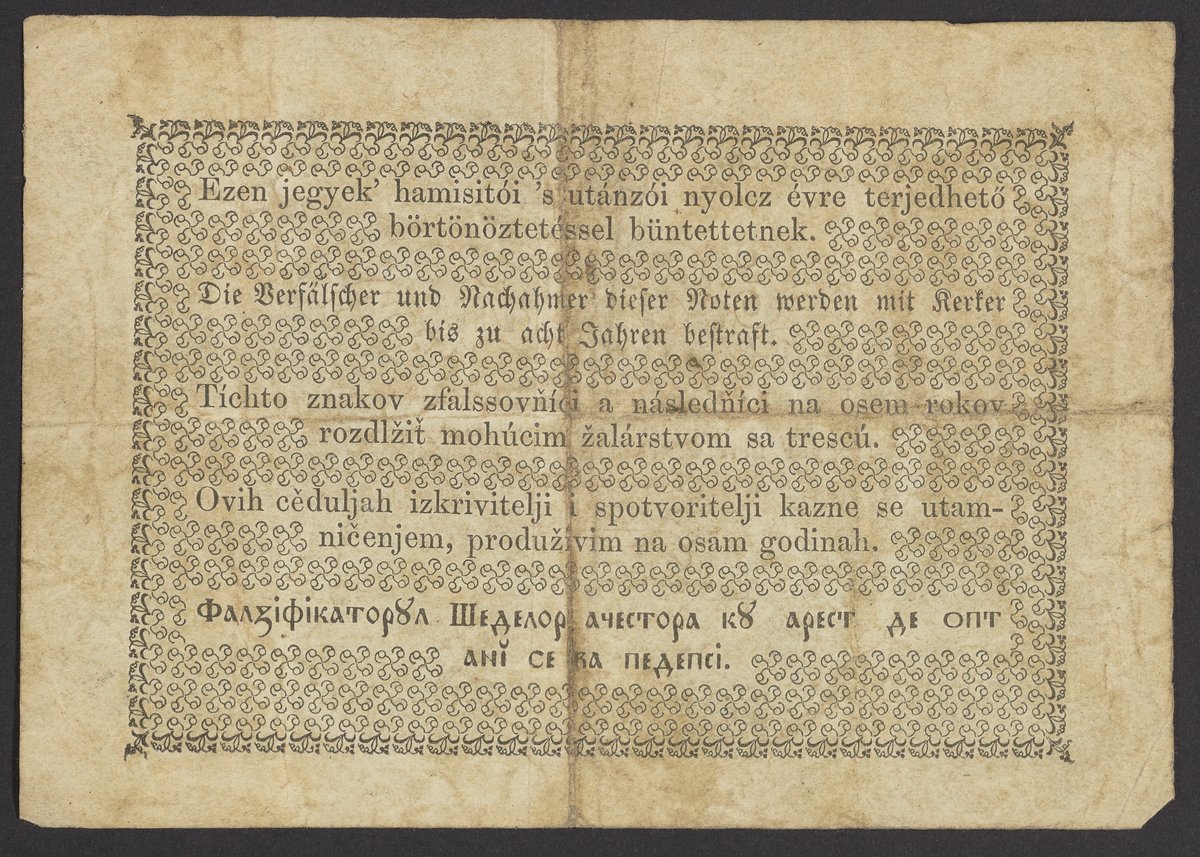 Ezen jegyek’ hamisitói ’s utánzói nyolcz évre terjedhető
börtönöztetéssel büntettetnek.
Die Verfälscher und Nachahmer dieser Noten werden mit Kerker
bis zu acht Jahren bestraft.
Tíchto znakov zfalssovňíci a následňíci na osem rokov
rozdlžiť mohúcim žalárstvom sa trescú.
Ovih cěduljah izkrivitelji i spotvoritelji kazne se utam-
ničenjem, produživim na osam godinah.
Фалзіфікаторꙋл Шеделор ачестора кꙋ арест де опт
анĭ се ва педепсі.